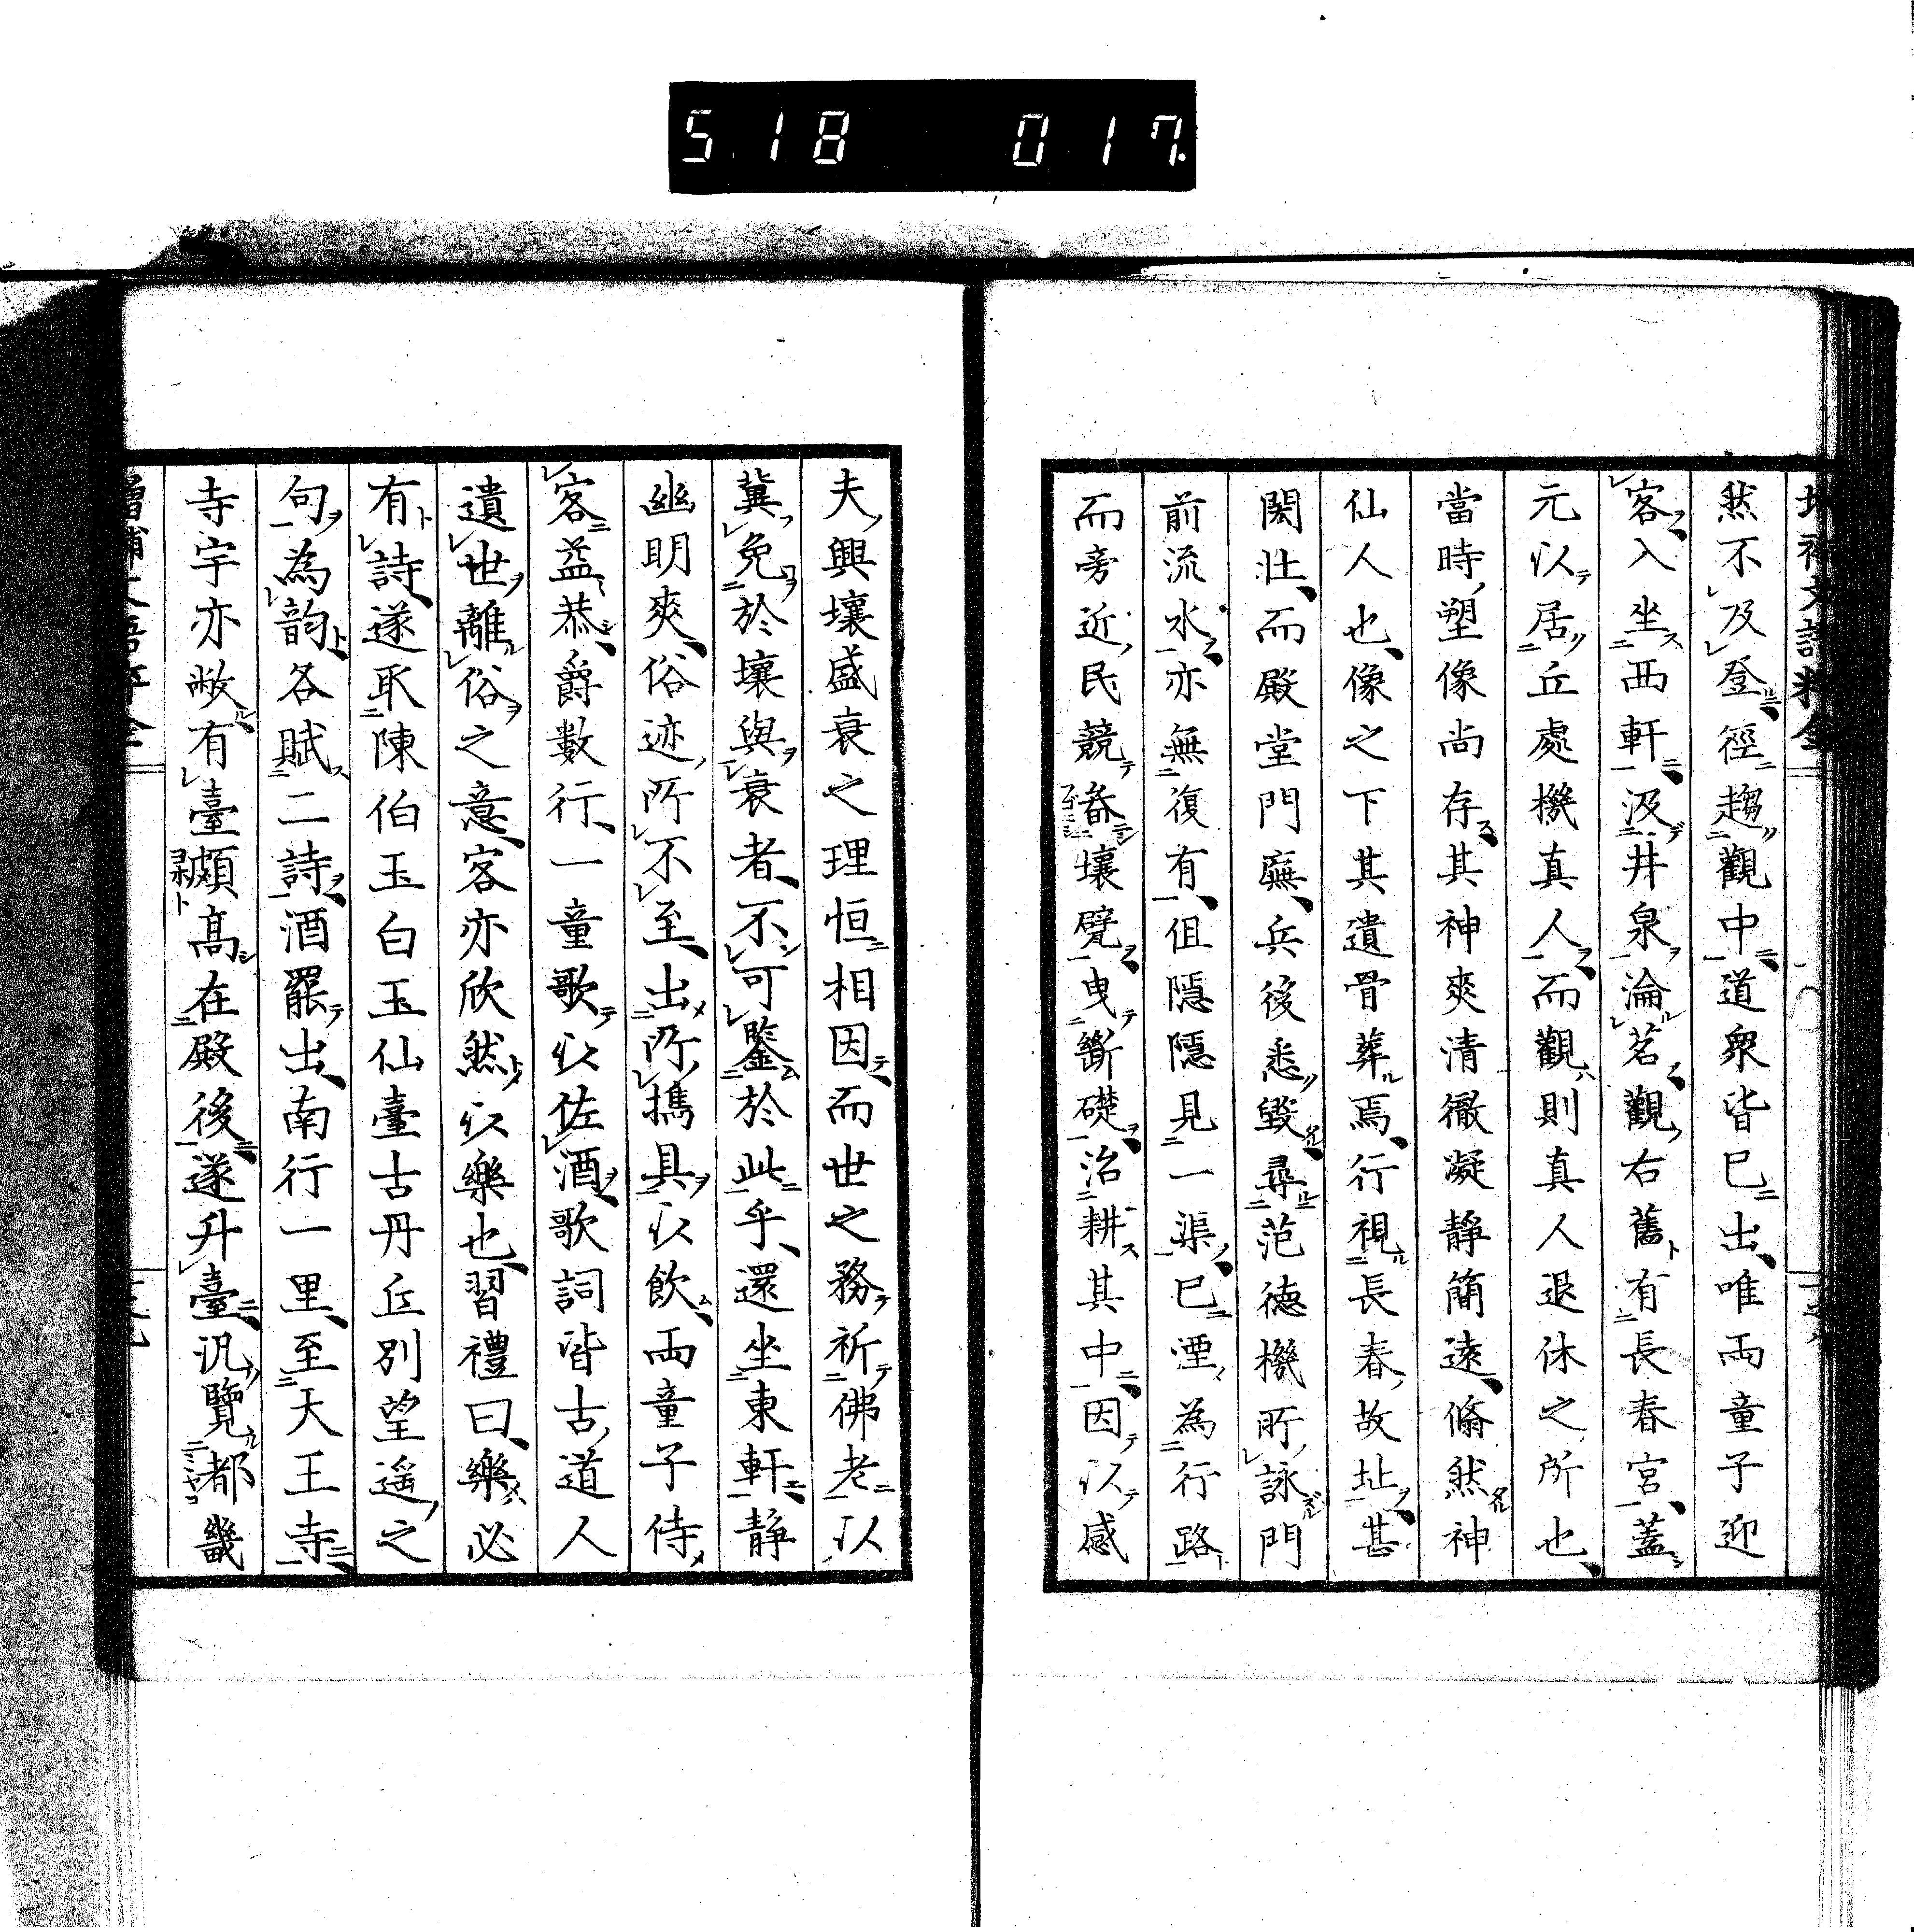 518 017
然不及登徑趨觀中道衆皆已出唯兩童子迎
客入坐西軒汲井泉瀹茗觀右舊有長春宮蓋
元以居丘處機真人而觀則真人退休之所也
當時塑像尚存其神爽清徹凝靜簡遠翛然神
仙人也像之下其遺骨葬焉行視長春故址甚
閎壯而殿堂門廡兵後悉毀尋范德機所詠門
前流水亦無復有但隱隱見一渠已湮為行路
而旁近民競畚壤甓曳斷礎治耕其中因以感
夫興壤盛衰之理恒相因而世之務祈佛老以
冀免於壤與衰者不可鑒於此乎還坐東軒靜
幽明爽俗迹所不至出所携具以飲兩童子侍
客益恭爵數行一童歌以佐酒歌詞皆古道人
遺世離俗之意客亦欣然以樂也習禮曰樂必
有詩遂取陳伯玉白玉仙臺古丹丘別望遥之
句為韵各賦二詩酒罷出南行一里至大王寺
寺宇亦敝有臺頗高在殿後遂升臺汎覽都畿